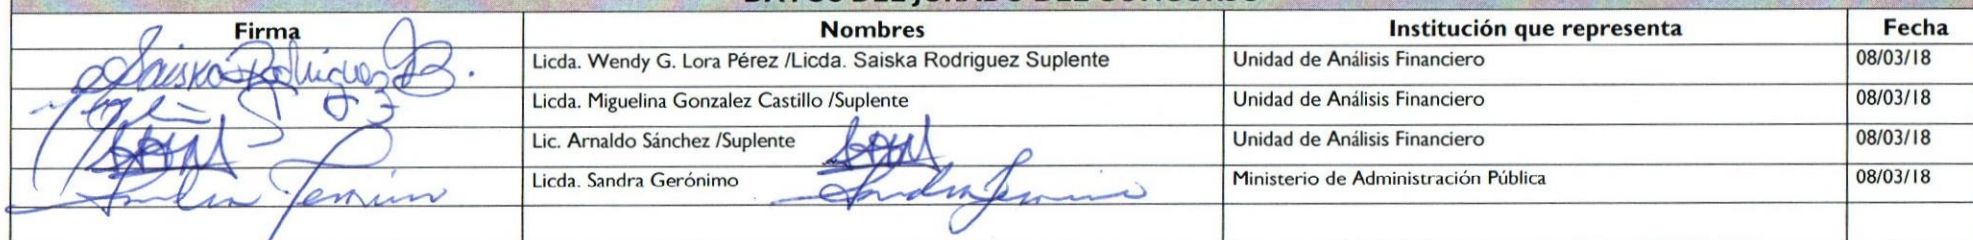 DATOS DEL JURADO DEL CONCURSO
Firma Nombres Institución que representa Fecha
Saiska Rodriguez B. Licda. Wendy G. Lora Pérez /Licda. Saiska Rodriguez Suplente Unidad de Análisis Financiero 08/03/18
Licda. Miguelina Gonzalez Castillo /Suplente Unidad de Análisis Financiero 08/03/18
Lic. Arnaldo Sánchez /Suplente Unidad de Análisis Financiero 08/03/18
Licda. Sandra Gerónimo Ministerio de Administración Pública 08/03/18